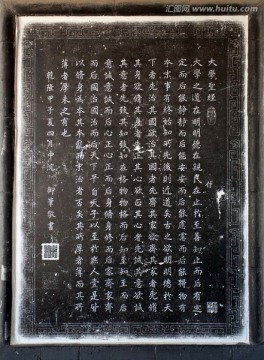 汇图网
www.huitu.com
大學聖經
大學之道在明明德在親民在止於至善知止而后有定
定而后能靜靜而后能安安而后能慮慮而后能得物有
本末事有終始知所先後則近道矣古之欲明明德於天
下者先治其國欲治其國者先齊其家欲齊其家者先脩
其身欲脩其身者先正其心欲正其心者先誠其意欲誠
其意者先致其知致知在格物物格而后知至知至而后
意誠意誠而后心正心正而后身脩身脩而后家齊家齊
而后國治國治而后天下平自天子以至於庶人壹是皆
以脩身為本其本亂而末治者否矣其所厚者薄而其所
薄者厚未之有也
乾隆甲午夏四月中浣 御筆敬書